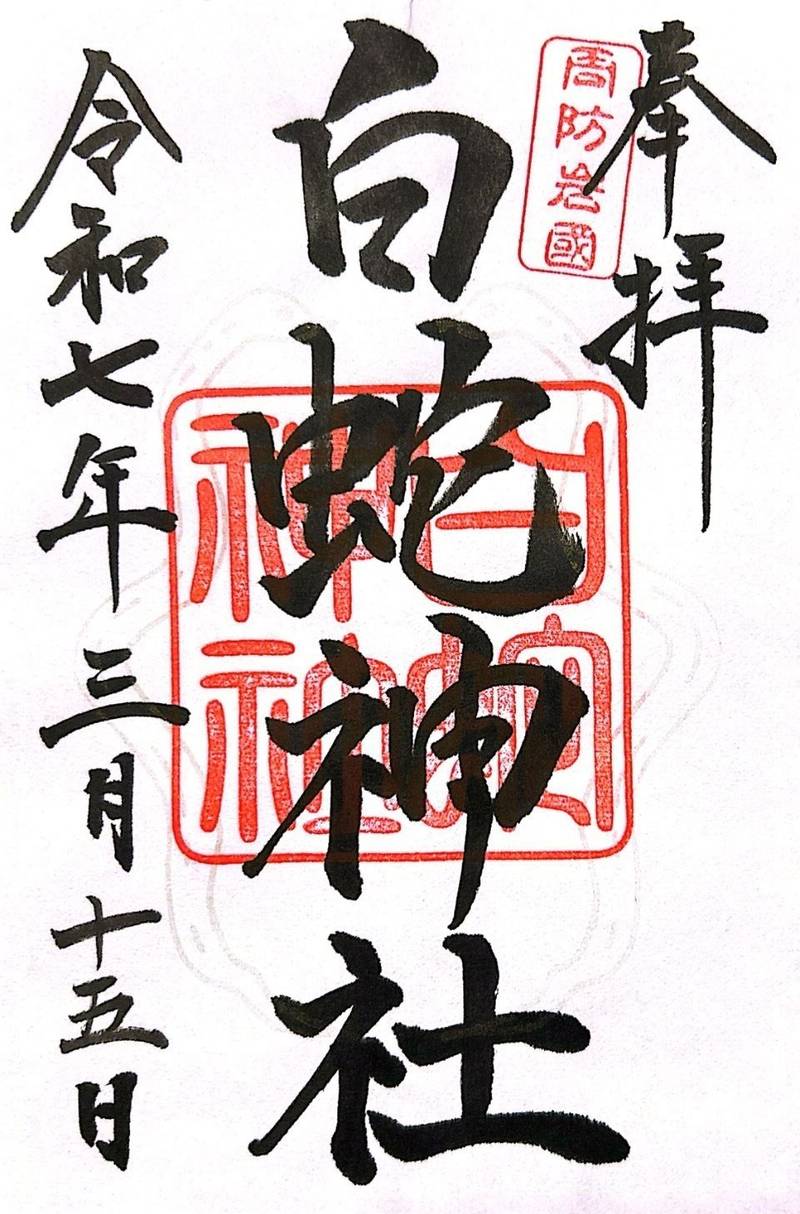 奉拝
周防岩國
白蛇神社
白蛇神社
令和七年三月十五日